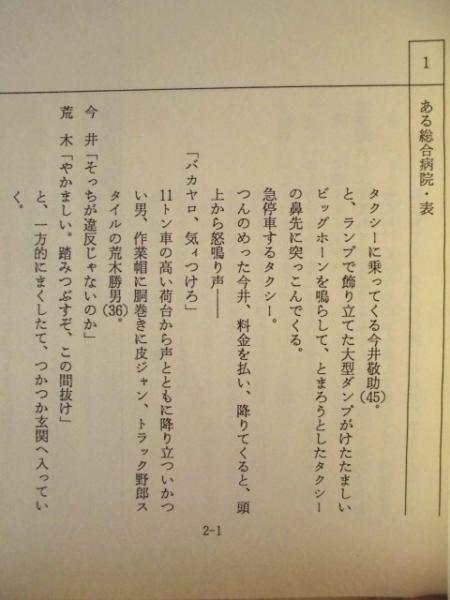 1
ある総合病院・表
タクシーに乗ってくる今井敬助(45)。
と、ランプで飾り立てた大型ダンプがけたたましい
ビッグホーンを鳴らして、とまろうとしたタクシー
の鼻先に突っこんでくる。
急停車するタクシー。
つんのめった今井、料金を払い、降りてくると、頭
上から怒鳴り声――
「バカヤロ、気ィつけろ」
11トン車の高い荷台から声とともに降り立ついかつ
い男、作業帽に胴巻きに皮ジャン、トラック野郎ス
タイルの荒木勝男(36)。
今井「そっちが違反じゃないのか」
荒木「やかましい。踏みつぶすぞ、この間抜け」
と、一方的にまくしたて、つかつか玄関へ入ってい
く。
2-1